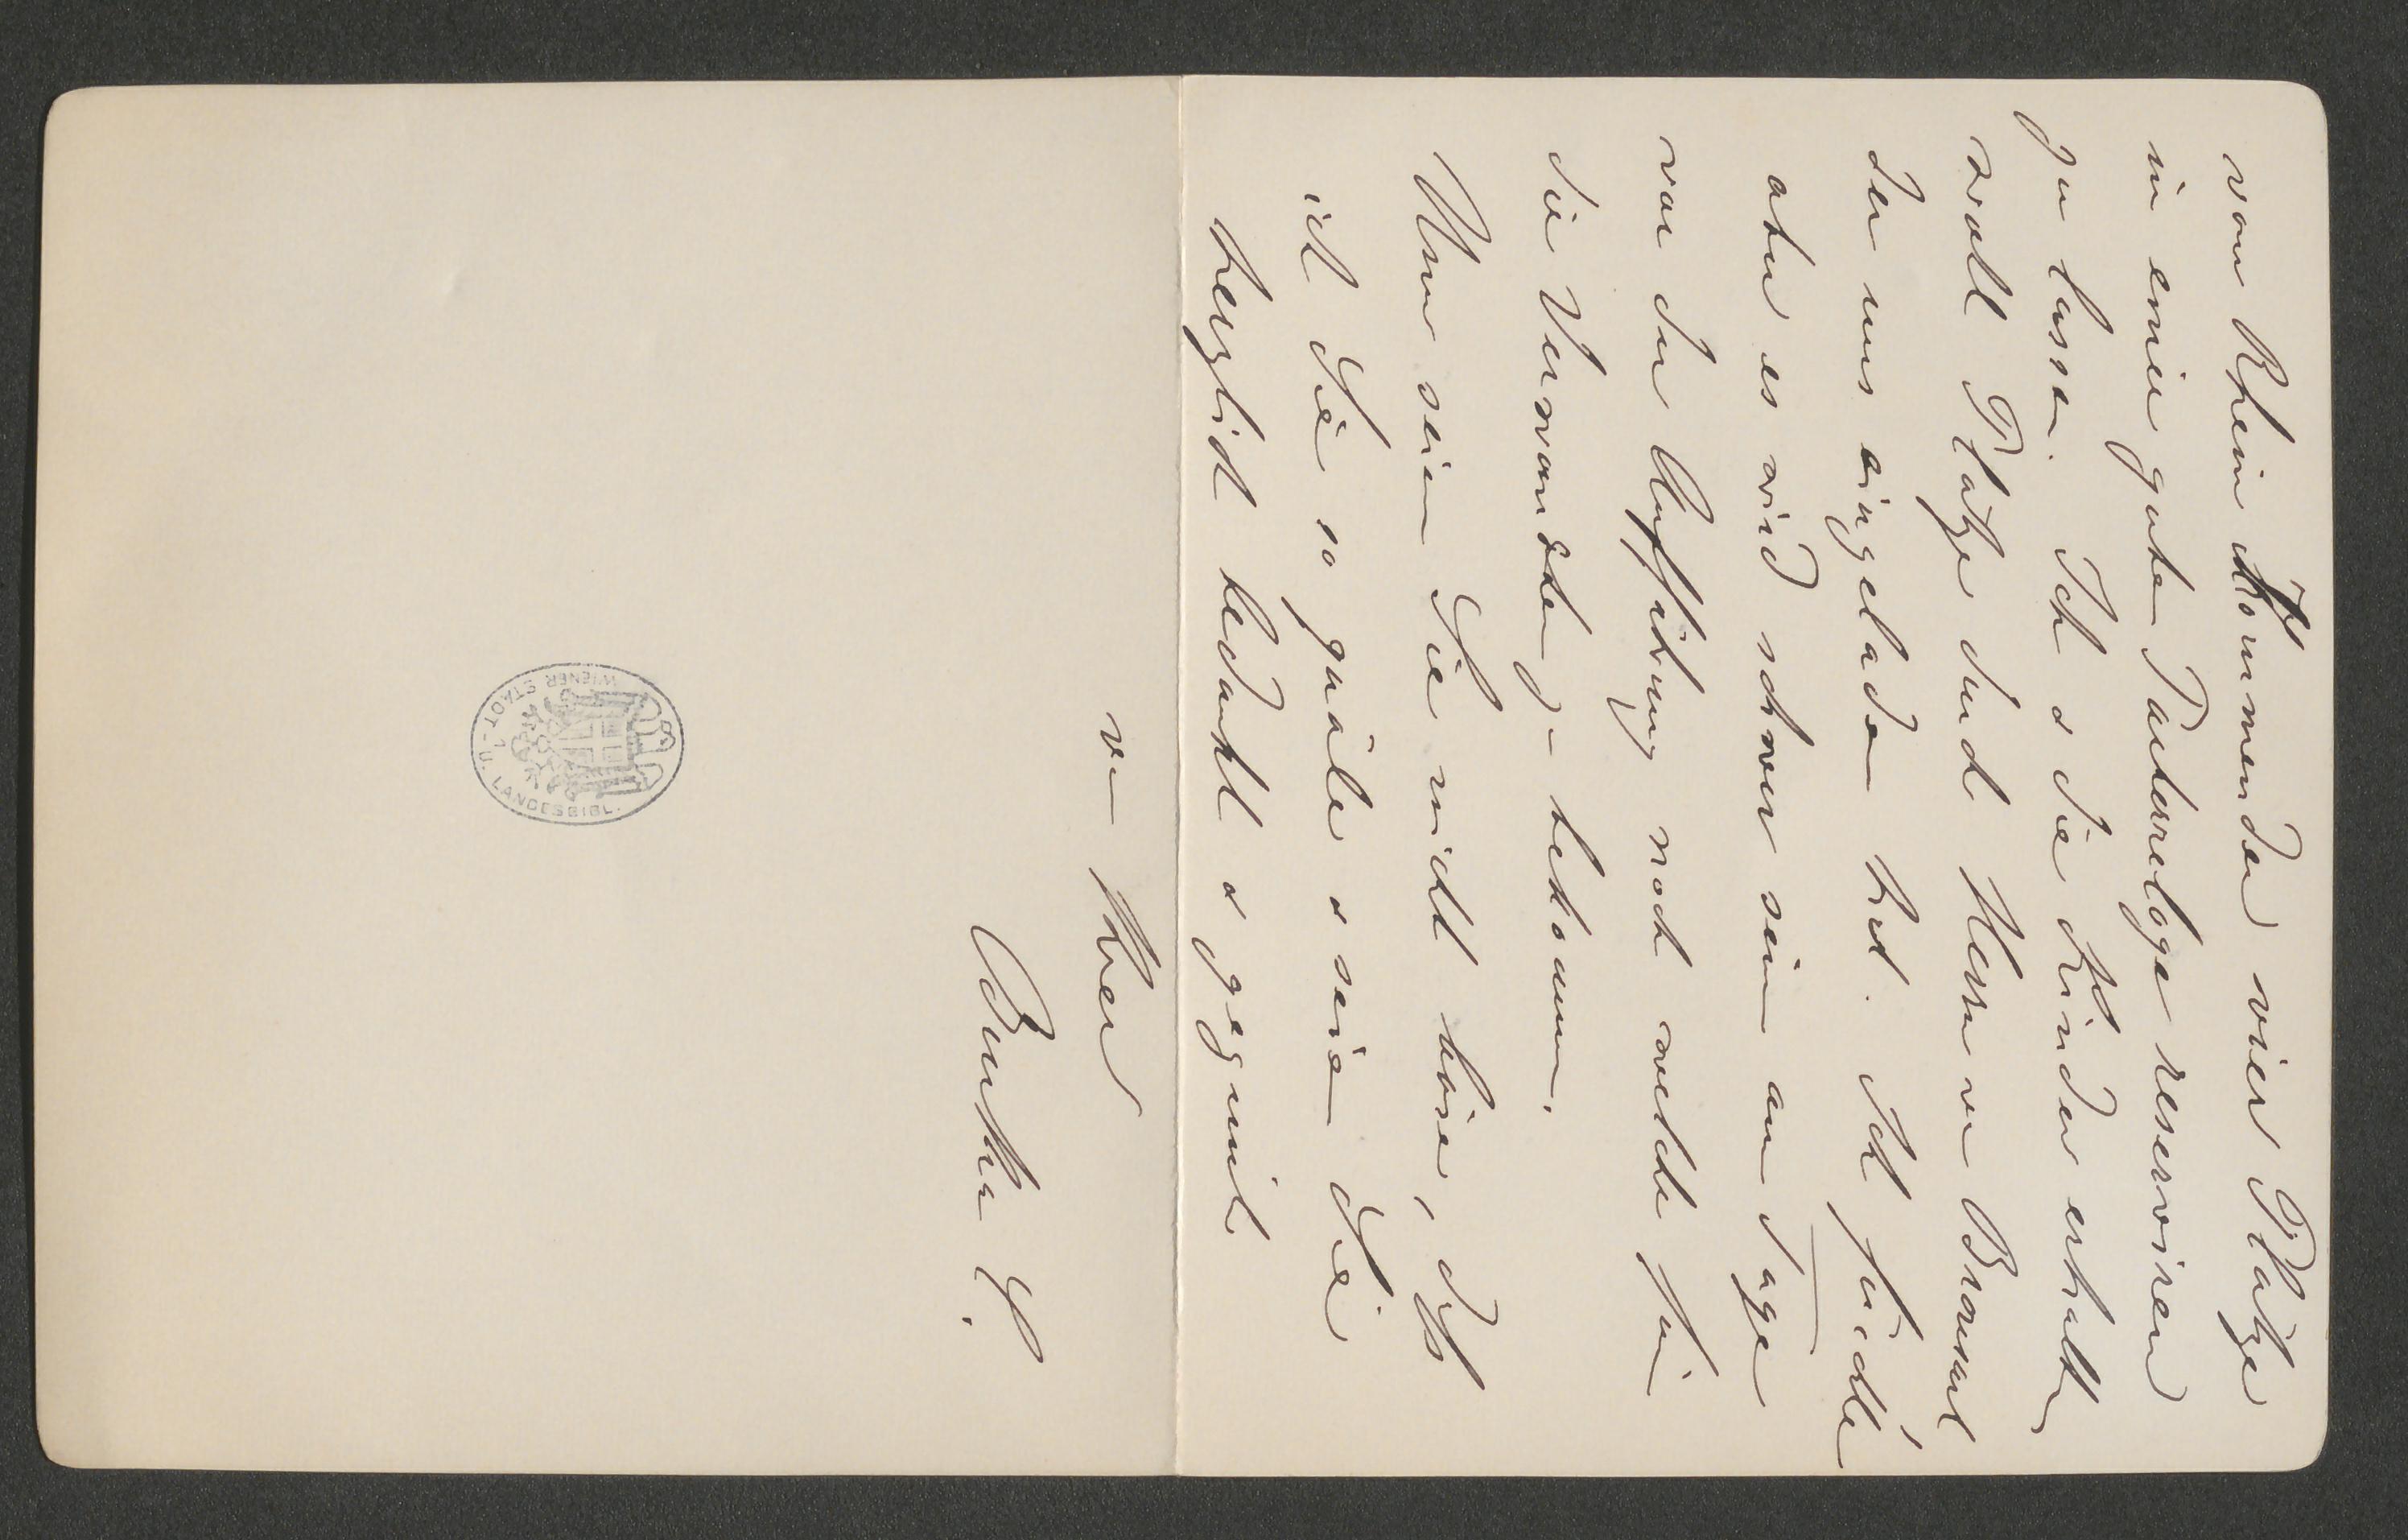 vom Rhein Kommenden vier Plätze
in einer guten Parterreloge reserviren
zu lassen. Ich & die Kinder erhalten
wohl Plätze durch Herrn v
der uns eingeladen hat. Ich fürchte
aber es wird schwer sein am Tage
vor der Aufführung noch welche für
die Verwandten zu bekommen.
Nun seien Sie nicht böse, daß
ich Sie so quäle & seien Sie
herzlich bedankt & gegrüßt
von Ihrer
Bertha
WIENER STADT- U. LANDESBIBL.